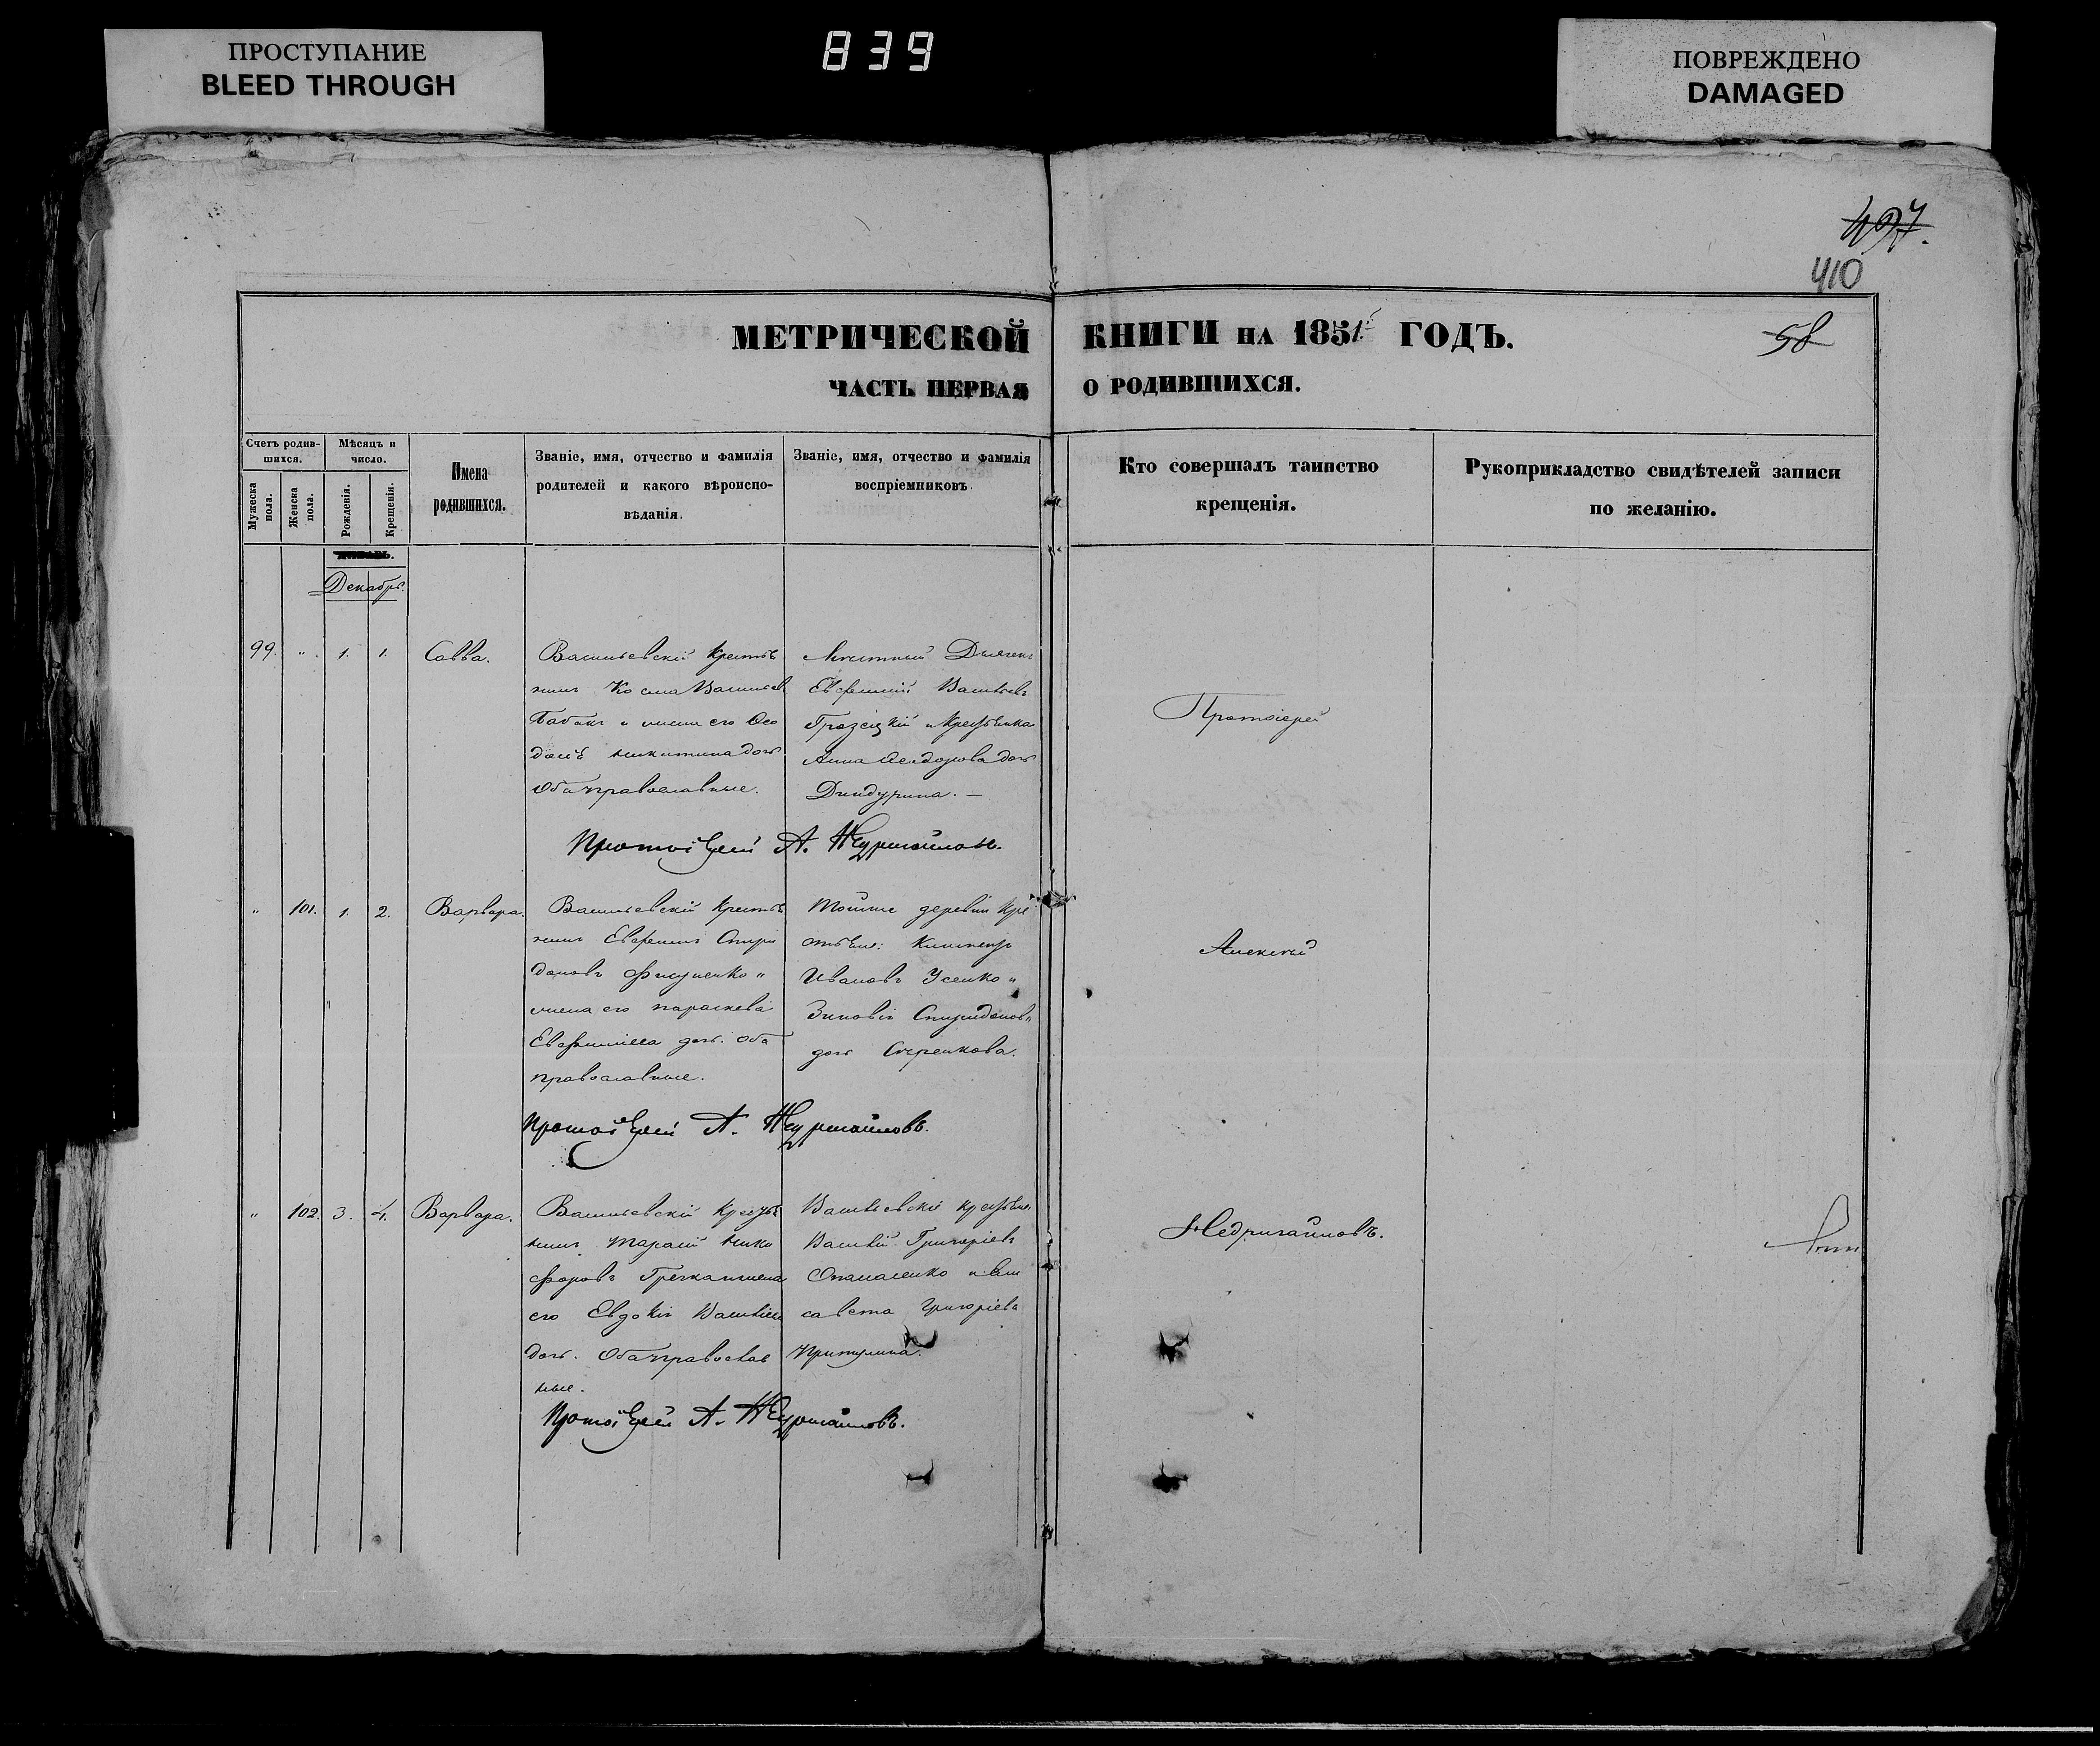 ПРОСТУПАНИЕ
BLEED THROUGH
839
ПОВРЕЖДЕНО
DAMAGED
407.
410
58
МЕТРИЧЕСКОЙ КНИГИ НА 1851 ГОДЪ.
ЧАСТЬ ПЕРВАЯ О РОДИВШИХСЯ.
Счетъ родив-
шихся.
Мужеска пола.
Женска пола.
Мѣсяцъ и
число.
Рожденія.
Крещенія.
Имена
родившихся.
Званіе, имя, отчество и фамилія
родителей и какого вѣроиспо-
вѣданія.
Званіе, имя, отчество и фамилія
воспріемниковъ.
Кто совершалъ таинство
крещенія.
Рукоприкладство свидѣтелей записи
по желанію.
Декабрь.
99. " 1. 1. Савва.
Васильевскій крестья
нинъ Косма Васильев
Бабакъ и жена его Ѳео
досія Никитина дочь
Оба православные.
Евфимій Васильевъ
и крестьянка
Анна Ѳеодорова дочь
Протоіерей А. Недригайловъ.
" 101. 1. 2. Варвара.
Васильевскій крестья
нинъ Евфимъ Спири
доновъ
жена его Параскева
Евфиміева дочь. Оба
православные.
Тойже деревни кре
стьяне: Климентъ
Ивановъ Усенко и
Зиновія Спиридонов
дочь
Протоіерей А. Недригайловъ.
" 102. 3. 4. Варвара.
Васильевскій крестья
нинъ Тарасій Ники
форовъ жена
его Евдокія Васильева
дочь. Оба православ
ные.
Васильевскіе крестьяне
Василій Григоріевъ
Опанасенко и Ели
савета Григоріева
Притулина.
Протоіерей А. Недригайловъ.
Протоіерей
Алексей
Недригайловъ.